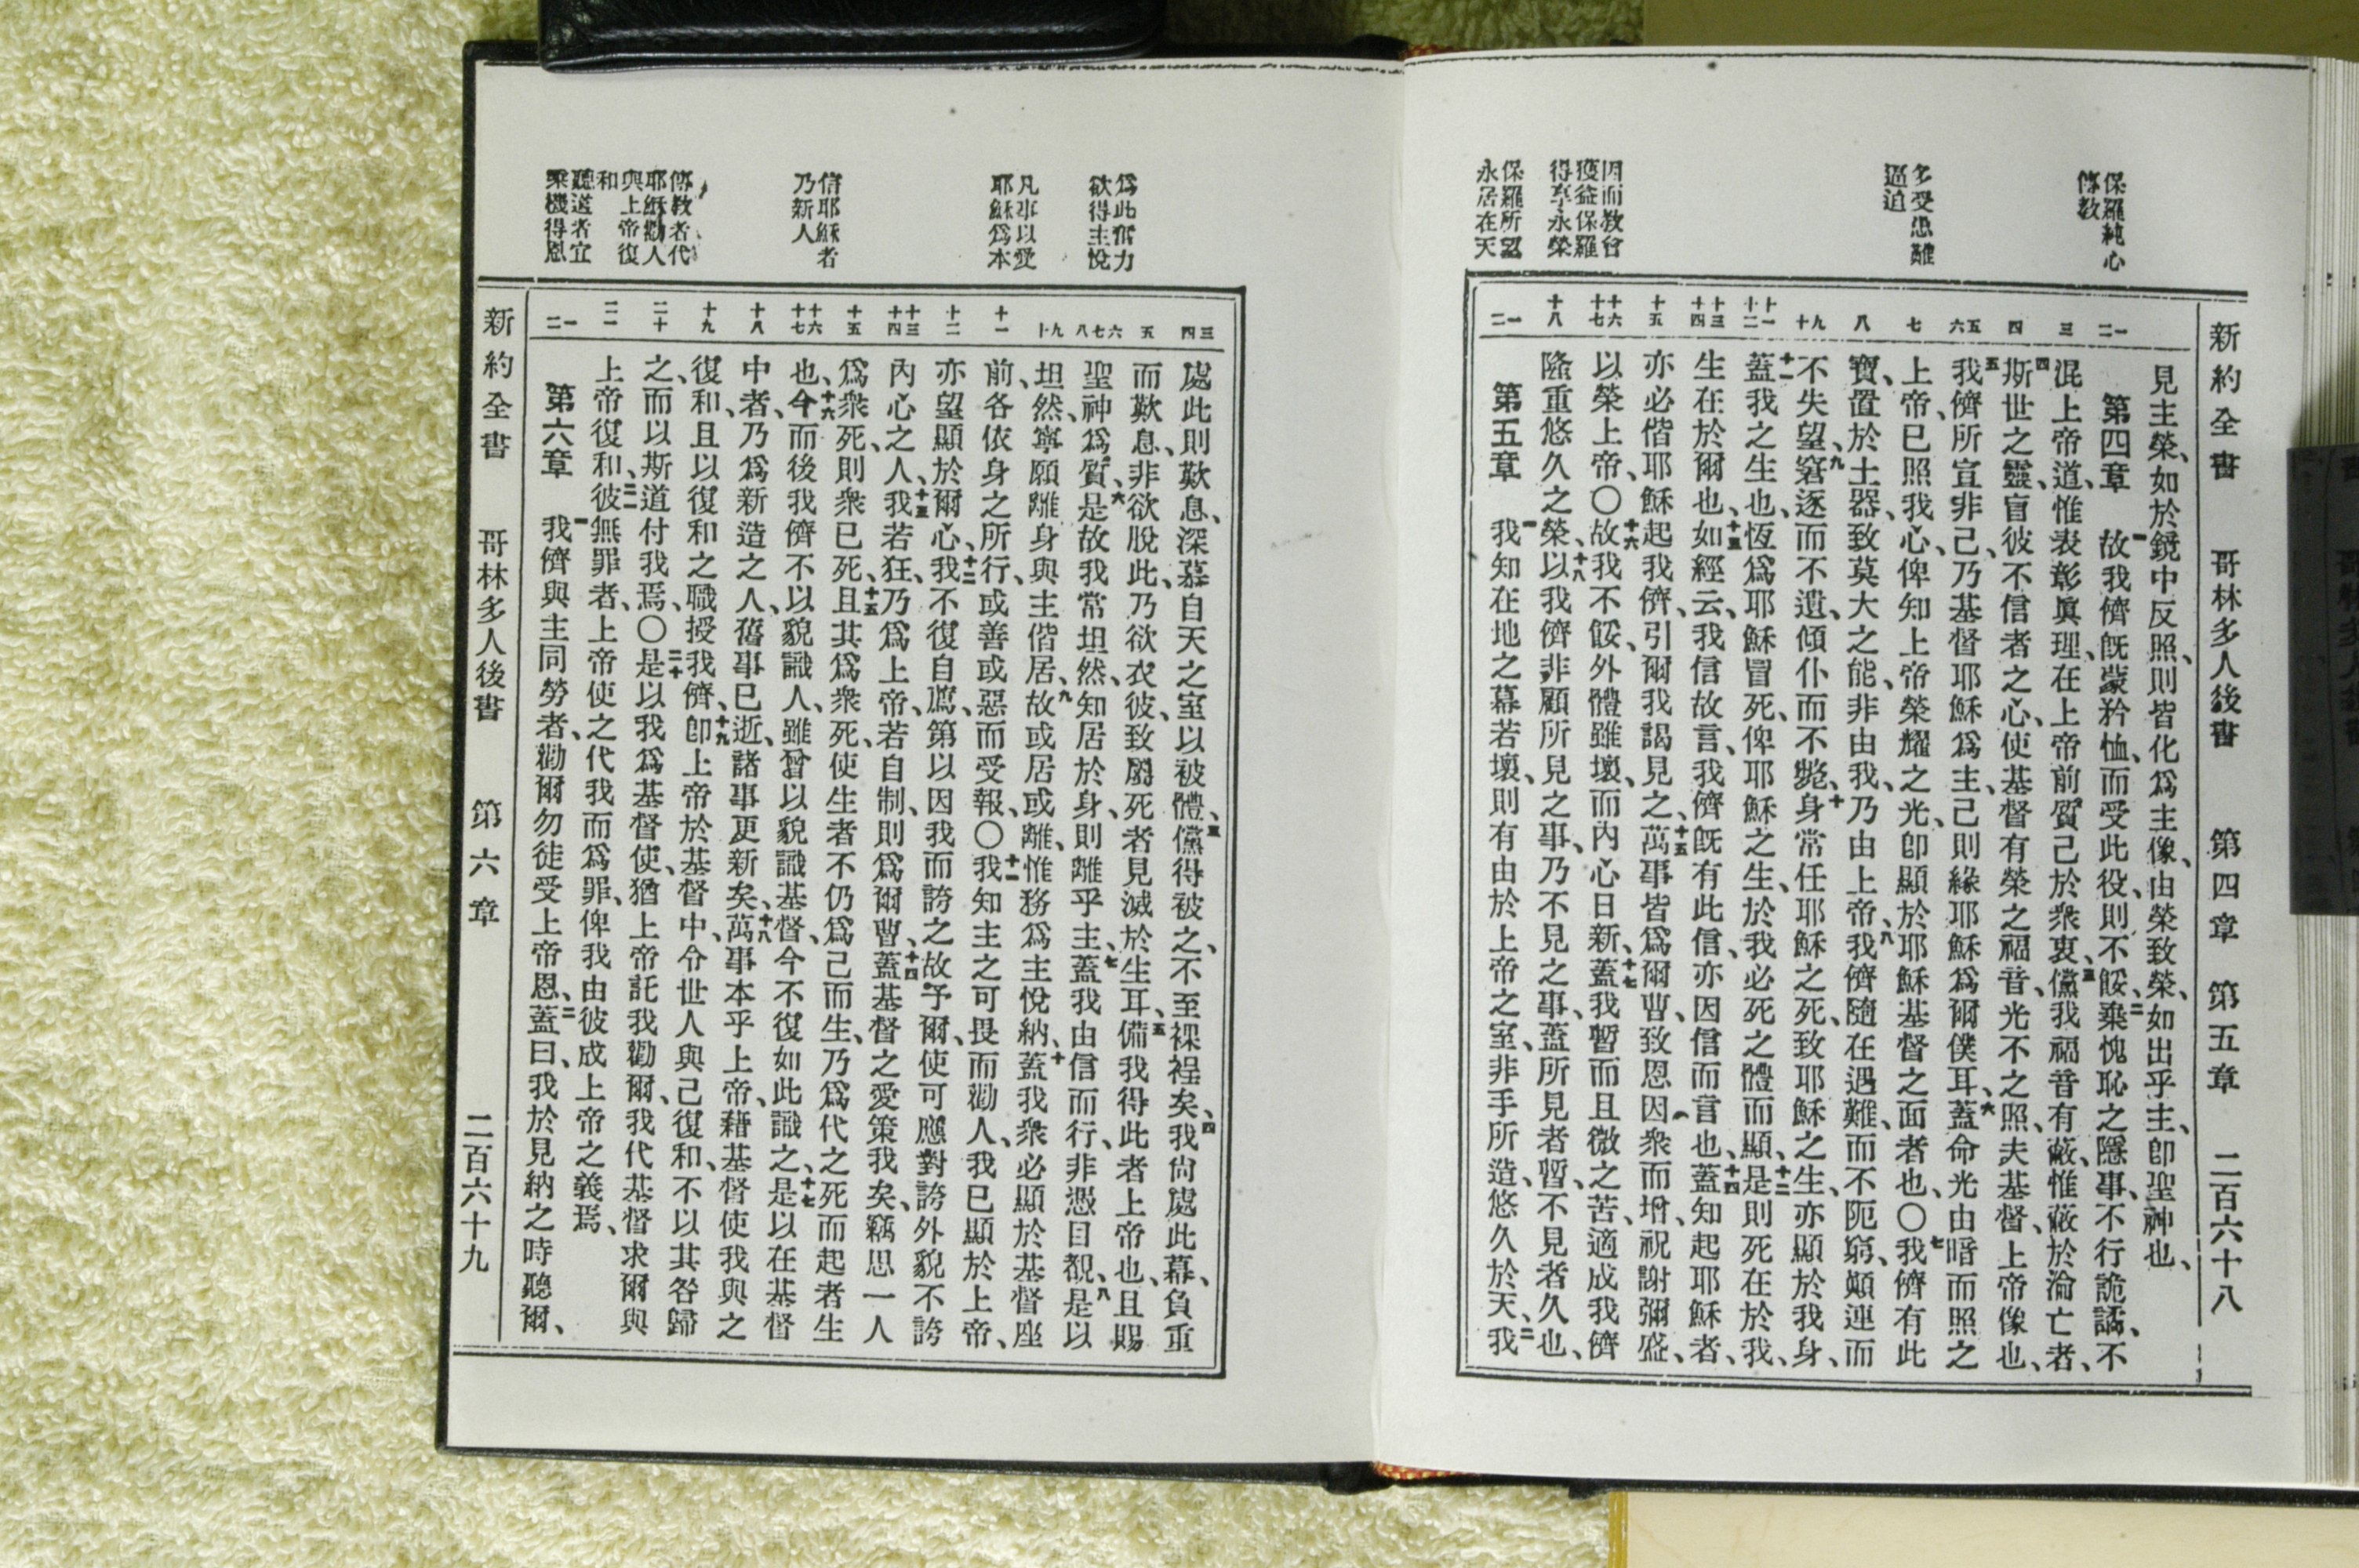 新約全書 哥林多人後書 第四章 第五章 二百六十八
保羅純心
傳教
多受患難
逼迫
因而教會
獲益保羅
得享永榮
保羅所望
永居在天
見主榮、如於鏡中反照、則皆化爲主像、由榮致榮、如出乎主、卽聖神也、
第四章 一故我儕旣蒙矜恤、而受此役、則不餒、二棄愧恥之隱事、不行詭譎、不
混上帝道、惟表彰眞理、在上帝前質己於衆衷、三儻我福音有蔽、惟蔽於淪亡者、
四斯世之靈、盲彼不信者之心、使基督有榮之福音、光不之照、夫基督、上帝像也、
五我儕所宣非己、乃基督耶穌爲主、己則緣耶穌爲爾僕耳、六蓋命光由暗而照之
上帝、已照我心、俾知上帝榮耀之光、卽顯於耶穌基督之面者也、〇七我儕有此
寶、置於土器、致莫大之能、非由我、乃由上帝、八我儕隨在遇難、而不阨窮、顚連而
不失望、九窘逐而不遺、傾仆而不斃、十身常任耶穌之死、致耶穌之生、亦顯於我身、
十一蓋我之生也、恆爲耶穌冒死、俾耶穌之生、於我必死之體而顯、十二是則死在於我、
生在於爾也、十三如經云、我信故言、我儕旣有此信、亦因信而言也、十四蓋知起耶穌者、
亦必偕耶穌起我儕、引爾我謁見之、十五萬事皆爲爾曹、致恩因衆而增、祝謝彌盛、
以榮上帝、〇十六故我不餒、外體雖壞、而內心日新、十七蓋我暫而且微之苦、適成我儕
隆重悠久之榮、十八以我儕非顧所見之事、乃不見之事、蓋所見者暫、不見者久也、
第五章 一我知在地之幕若壞、則有由於上帝之室、非手所造、悠久於天、二我
爲此奮力
欲得主悅
凡事以愛
耶穌爲本
信耶穌者
乃新人
傳教者代
耶穌勸人
與上帝復
和
聽道者宜
乘機得恩
處此則歎息、深慕自天之室以被體、三儻得被之、不至裸裎矣、四我尙處此幕、負重
而歎息、非欲脫此、乃欲衣彼、致屬死者見滅於生耳、五備我得此者上帝也、且賜
聖神爲質、六是故我常坦然、知居於身、則離乎主、七蓋我由信而行、非憑目覩、八是以
坦然、寧願離身與主偕居、九故或居或離、惟務爲主悅納、十蓋我衆必顯於基督座
前、各依身之所行、或善或惡而受報、〇十一我知主之可畏而勸人、我已顯於上帝、
亦望顯於爾心、十二我不復自薦、第以因我而誇之故予爾、使可應對誇外貌不誇
內心之人、十三我若狂、乃爲上帝、若自制、則爲爾曹、十四蓋基督之愛策我矣、竊思一人
爲衆死、則衆已死、十五且其爲衆死、使生者不仍爲己而生、乃爲代之死而起者生
也、十六今而後我儕不以貌識人、雖曾以貌識基督、今不復如此識之、十七是以在基督
中者、乃爲新造之人、舊事已逝、諸事更新矣、十八萬事本乎上帝、藉基督使我與之
復和、且以復和之職授我儕、十九卽上帝於基督中、令世人與己復和、不以其咎歸
之、而以斯道付我焉、〇二十是以我爲基督使、猶上帝託我勸爾、我代基督求爾與
上帝復和、二一彼無罪者、上帝使之代我而爲罪、俾我由彼成上帝之義焉、
第六章 一我儕與主同勞者、勸爾勿徒受上帝恩、二蓋曰、我於見納之時聽爾、
新約全書 哥林多人後書 第六章 二百六十九